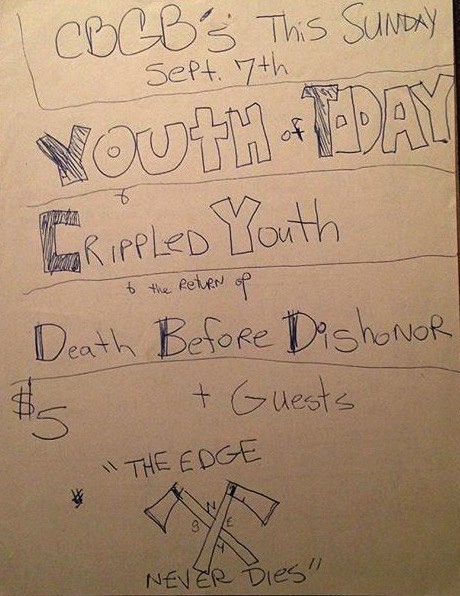 CBGB's This Sunday
Sept. 7th
Youth of Today
&
Crippled Youth
& the Return of
Death Before Dishonor
$5 + Guests
"THE EDGE
N
B E
Y
NEVER DIES"